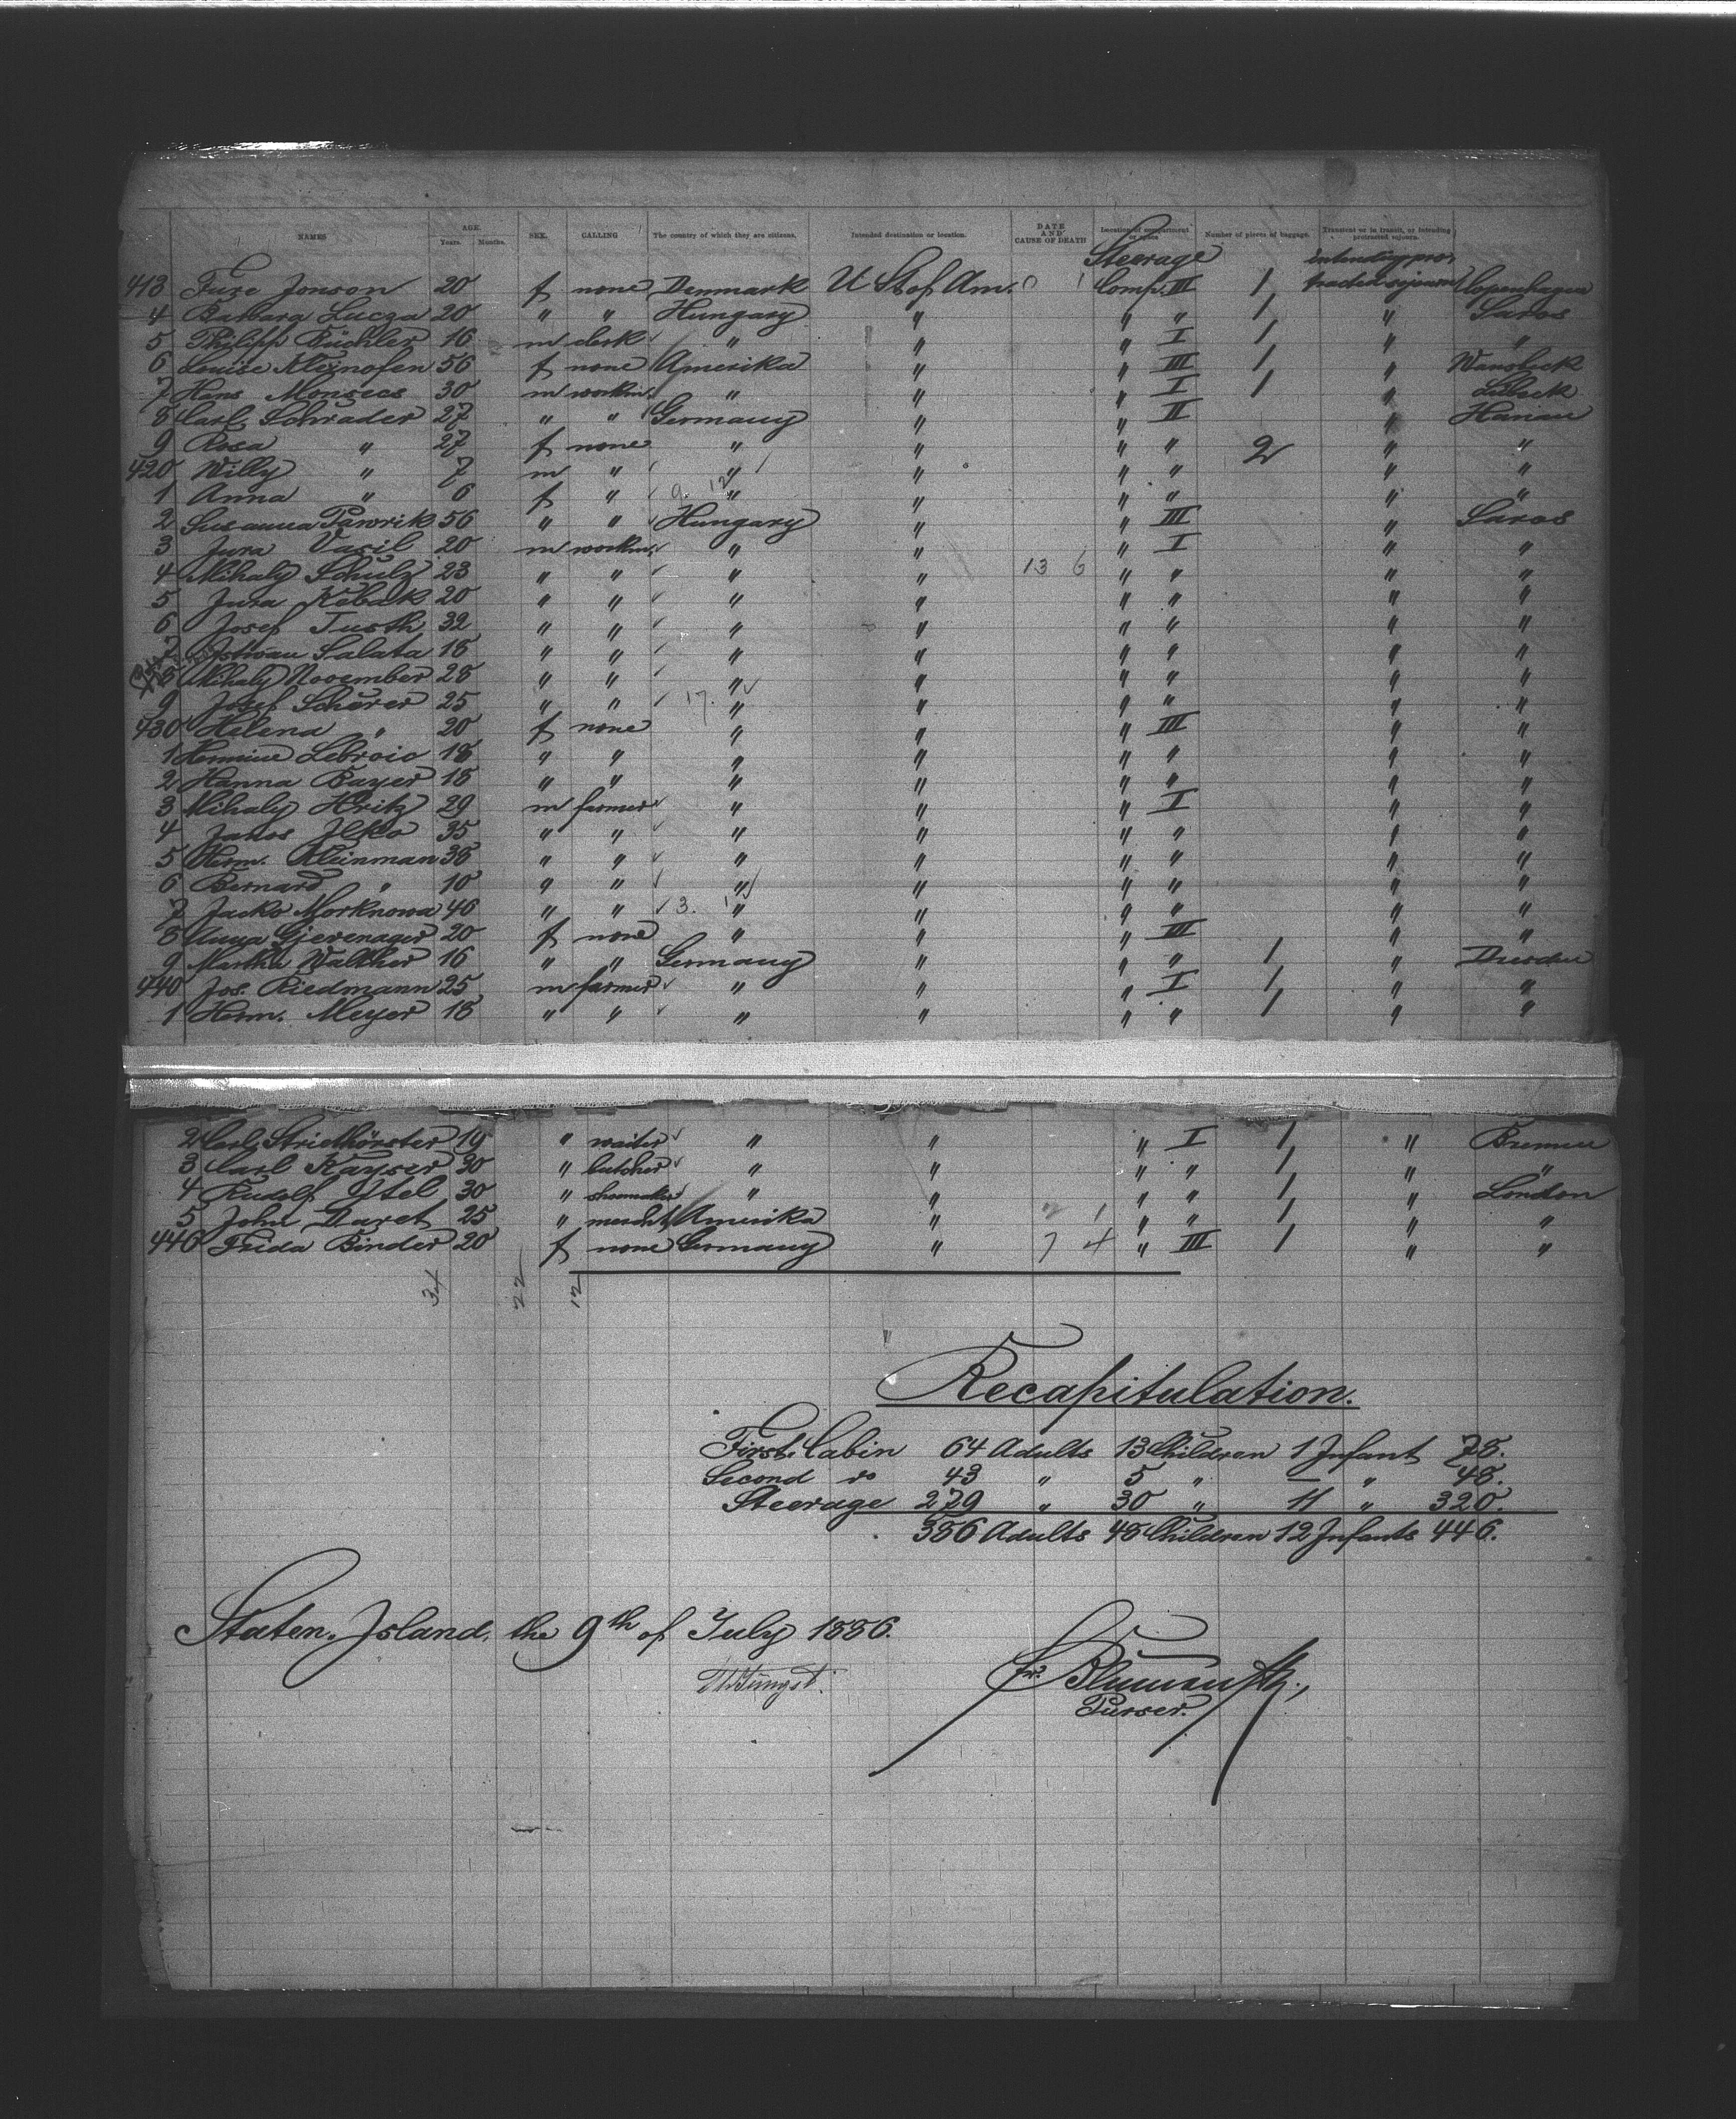 NAMES AGE. Years. Months. SEX. CALLING The country of which they are citizens. Intended destination or location. DATE AND CAUSE OF DEATH Location of compartment or space Number of pieces of baggage. Transient or in transit, or intending protracted sojourn.
Steerage intending pro-
413 Jonson 20 f none Denmark U St of Am. Comp. III 1 tracted sojourn Copenhagen
4 Barbara Lucza 20 " " Hungary " " " 1 " Saros
5 Philipp Büchler 16 m clerk " " " I 1 " "
6 Louise Kleinofen 56 f none Amerika " " III 1 " Wansbeck
7 Hans Monsees 30 m workm. " " " I 1 " Lübeck
8 Carl Schrader 27 " " Germany " " II " Hanau
9 Rosa " 27 f none " " " " 2 " "
420 Willy " 7 m " " " " " " "
1 Anna " 6 f " " " " " " "
2 Susanna Pawrik 56 " " Hungary " " III " Saros
3 Jura Vasil 20 m workm. " " " I " "
4 Mihaly Schulz 23 " " " " 13 6 " " " "
5 Jura Kebak 20 " " " " " " " "
6 Josef Tusth 32 " " " " " " " "
7 Istwan Salata 18 " " " " " " " "
8 Mihaly November 28 " " " " " " " "
9 Josef Scherer 25 " " 17. " " " " " "
430 Helena " 20 f none " " " III " "
1 Hermine Lebroio 18 " " " " " " " "
2 Hanna Bayer 18 " " " " " " " "
3 Mihaly Hritz 29 m farmer " " " I " "
4 Janos Ilko 35 " " " " " " " "
5 Herm. Kleinman 38 " " " " " " " "
6 Bernard " 10 " " " " " " " "
7 Jacko Morknowa 46 " " 3. " " " " " "
8 Anna 20 f none " " " III " "
9 Martha Walther 16 " " Germany " " " 1 " Dresden
440 Jos. Riedmann 25 m farmer " " " I 1 " "
1 Herm. Meyer 18 " " " " " " 1 " "
2 Carl Striethörster 19 " waiter " " " I 1 " Bremen
3 Carl Kayser 30 " butcher " " " " 1 " "
4 Rudolf Itel 30 " shoemaker " " " " 1 " London
5 John Daret 25 " mercht. Amerika " 2 1 " " 1 " "
446 Frida Binder 20 f none Germany " 7 4 " III 1 " "
34 22 12
Recapitulation.
First Cabin 64 Adults 13 Children 1 Infant 78.
Second do 43 " 5 " — " 48.
Steerage 279 " 30 " 11 " 320.
386 Adults 48 Children 12 Infants 446.
Staten. Island, the 9th of July 1886.
Purser.